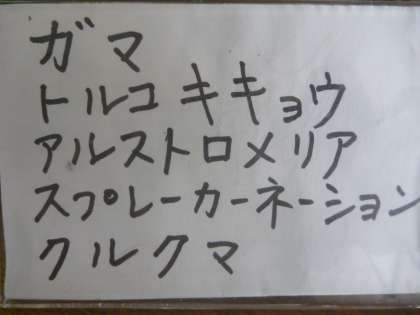 ガマ
トルコキキョウ
アルストロメリア
スプレーカーネーション
クルクマ